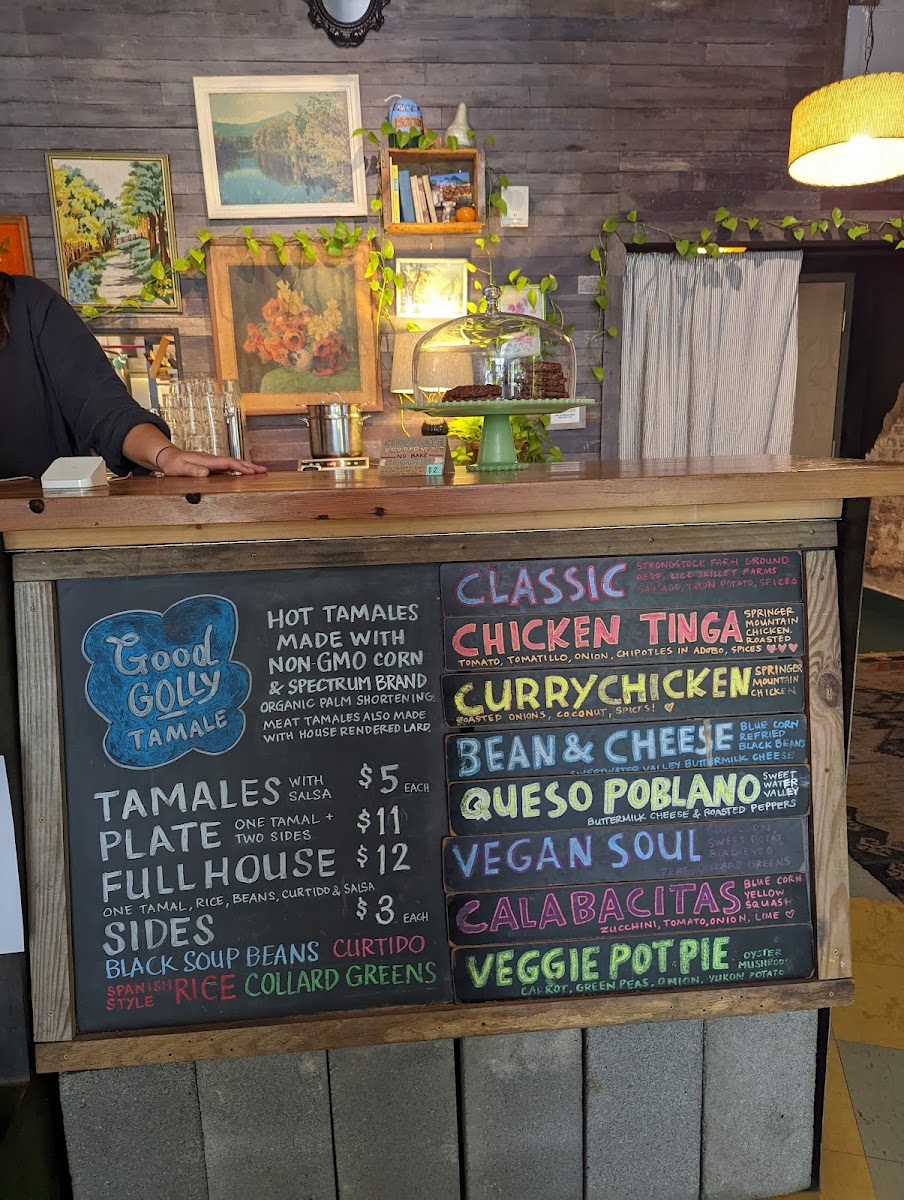 CHOCOLATE
NO BAKE
$2
Good
GOLLY
TAMALE
HOT TAMALES
MADE WITH
NON-GMO CORN
& SPECTRUM BRAND
ORGANIC PALM SHORTENING.
MEAT TAMALES ALSO MADE
WITH HOUSE RENDERED LARD.
TAMALES WITH SALSA $5 EACH
PLATE ONE TAMAL + TWO SIDES $11
FULL HOUSE $12
ONE TAMAL, RICE, BEANS, CURTIDO & SALSA
SIDES $3 EACH
BLACK SOUP BEANS CURTIDO
SPANISH STYLE RICE COLLARD GREENS
CLASSIC STRONGSTOCK FARM GROUND
BEEF, RICE SKILLET FARMS
SAUSAGE, YUKON POTATO, SPICES
CHICKEN TINGA SPRINGER
MOUNTAIN
CHICKEN.
ROASTED
TOMATO, TOMATILLO, ONION, CHIPOTLES IN ADOBO, SPICES ♥♥♥
CURRY CHICKEN SPRINGER
MOUNTAIN
CHICKEN
ROASTED ONIONS, COCONUT, SPICES! ♡
BEAN & CHEESE BLUE CORN
REFRIED
BLACK BEANS
SWEETWATER VALLEY BUTTERMILK CHEESE
QUESO POBLANO SWEET
WATER
VALLEY
BUTTERMILK CHEESE & ROASTED PEPPERS
VEGAN SOUL CORN,
SWEET POTATO
BLACK EYED
PEAS, COLLARD GREENS
CALABACITAS BLUE CORN
YELLOW
SQUASH
ZUCCHINI, TOMATO, ONION, LIME ♡
VEGGIE POT PIE OYSTER
MUSHROOM
CARROT, GREEN PEAS, ONION, YUKON POTATO